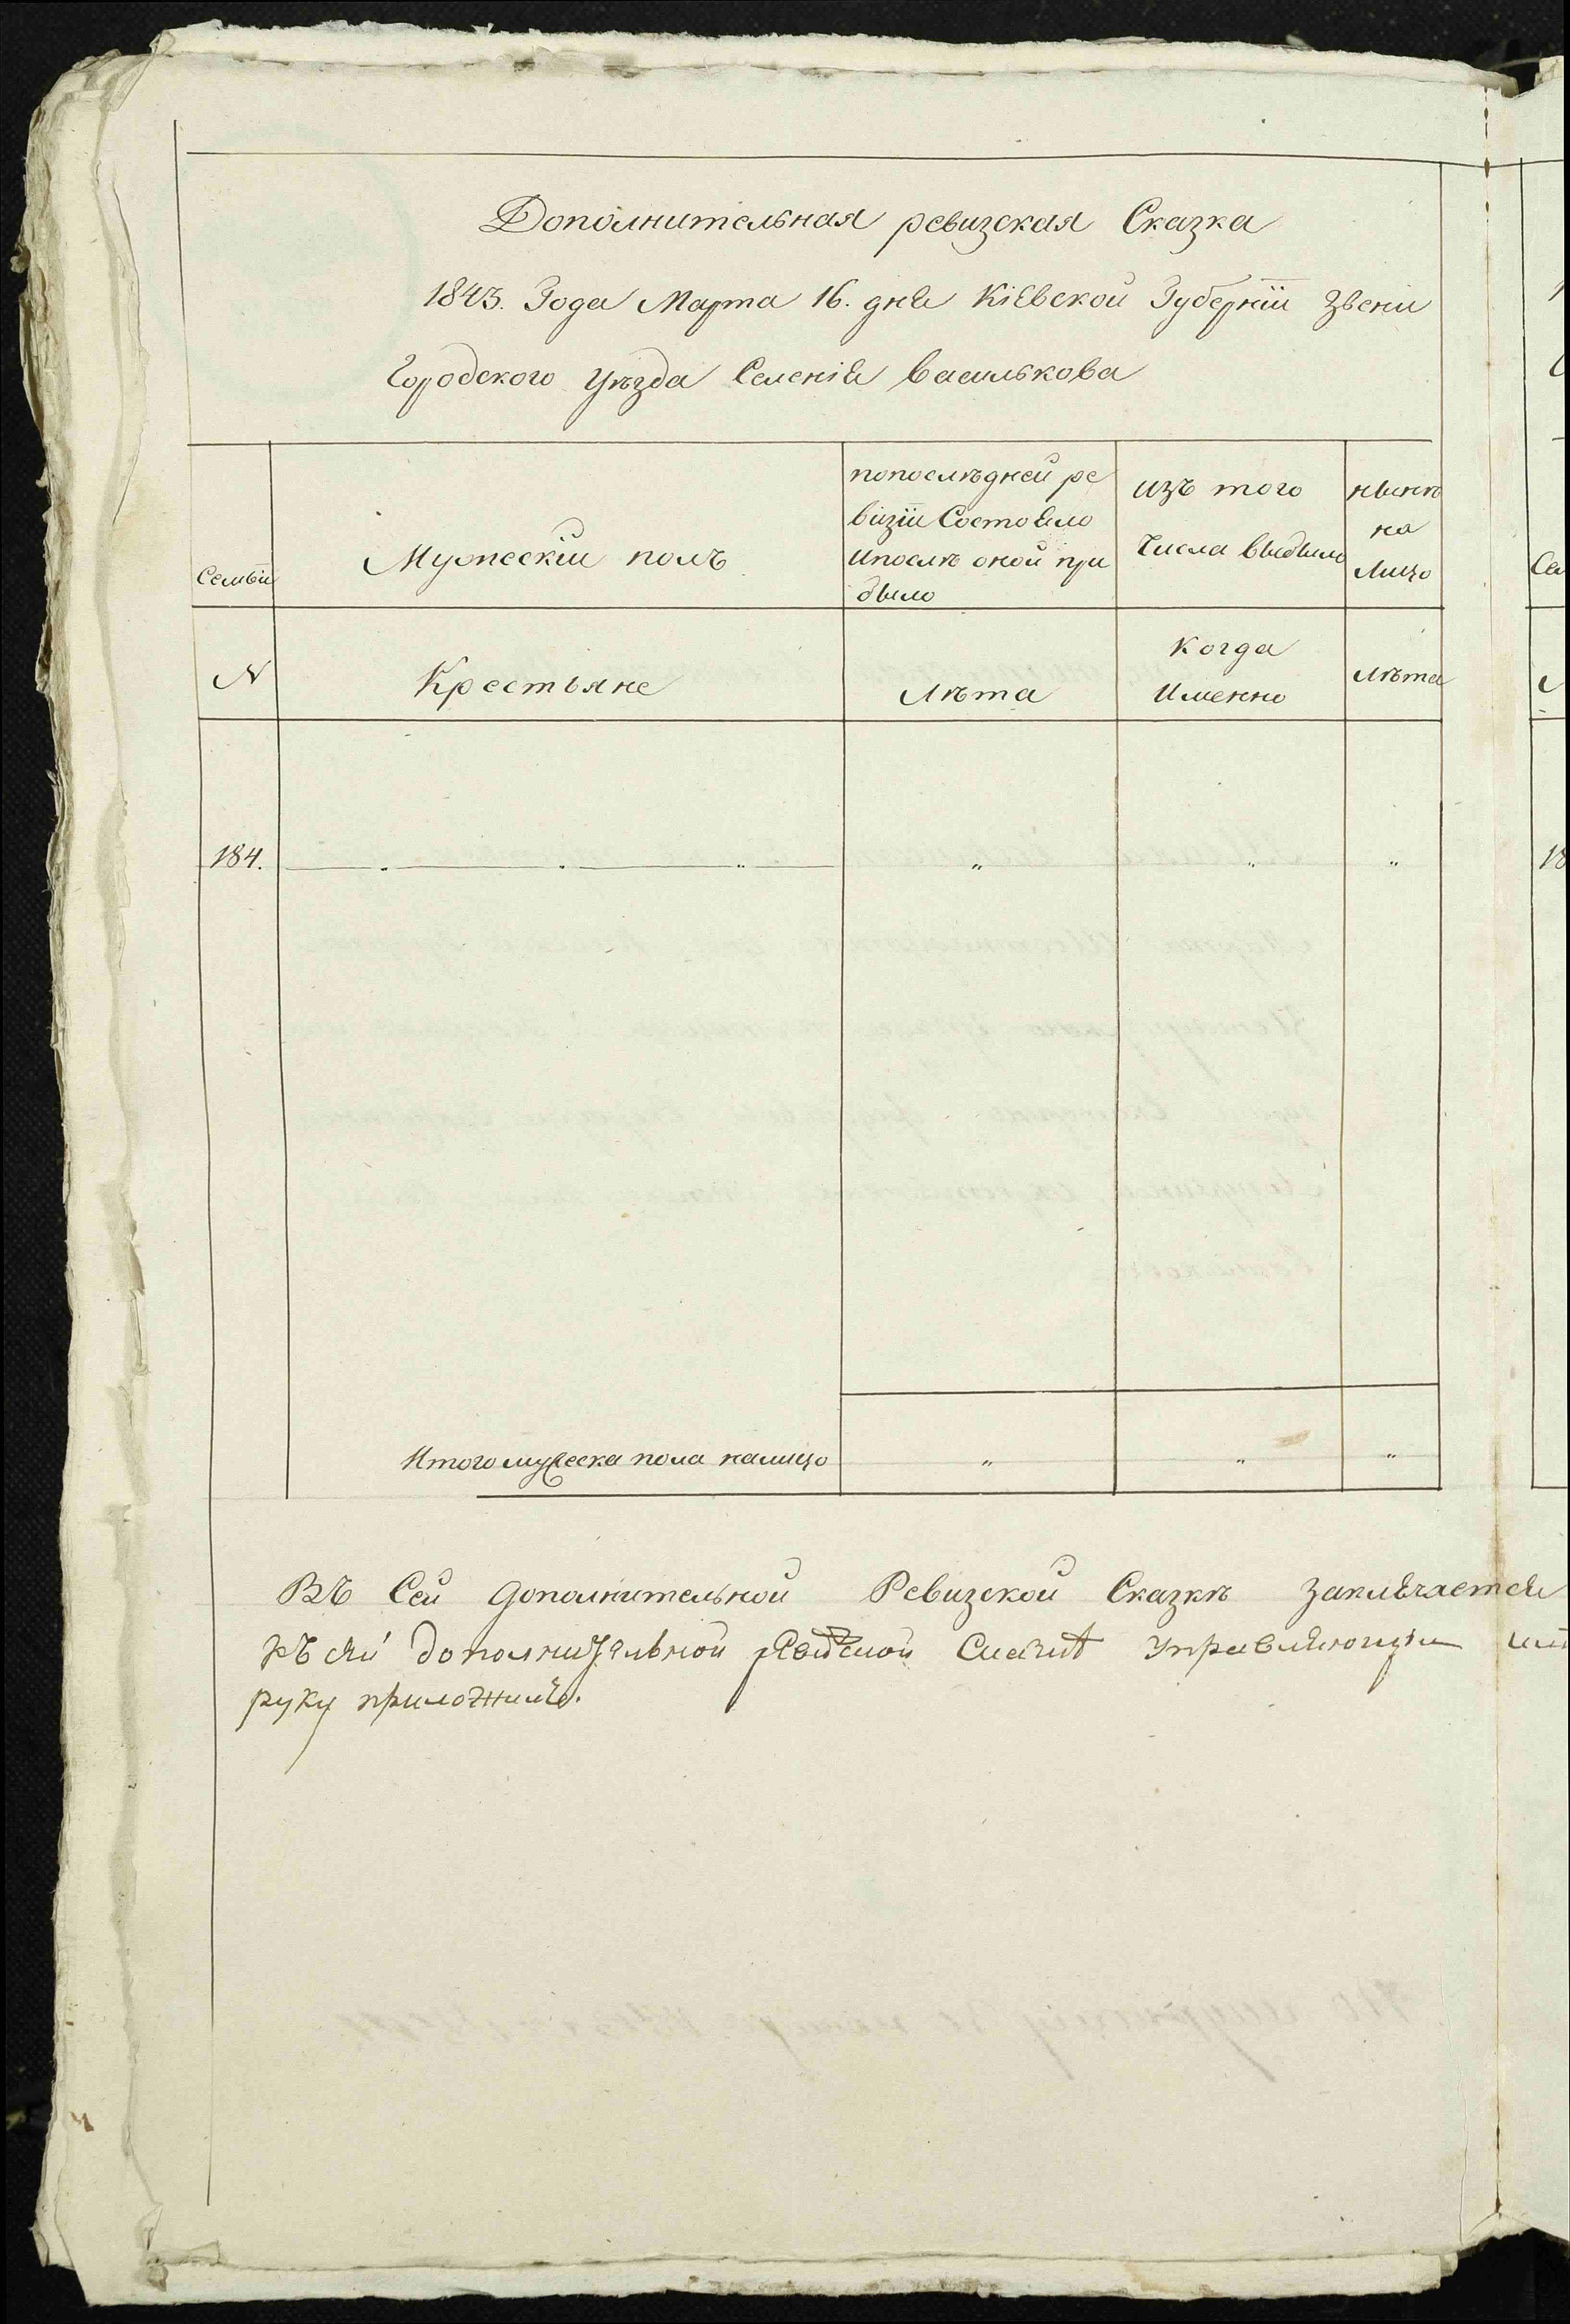 Дополнительная ревизская Сказка
1843. Года Марта 16. дня Кіевской Губерніи Звени
Городского уѣзда Селенія Василькова
Семьи
Мужескіи полъ
попослѣдней ре
візіи Состояло
ипослѣ оной при
было
изъ того
Числа выбыло
нынѣ
на
Лицо
Сем
N
Крестьяне
Лѣта
Когда
Именно
Лѣта
184.
18
Итого мужеска пола налицо
Въ Сей Дополнительной Ревизской Сказкѣ заключается
къ сей дополнительной ревизской Сказкѣ Управляющіи
руку приложилъ.